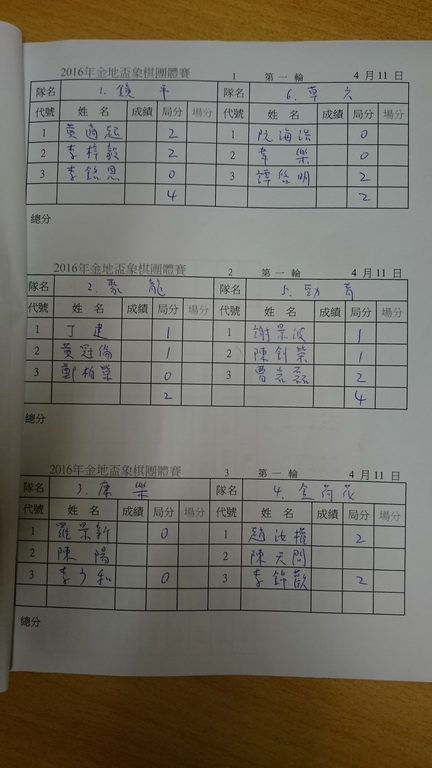 2016年金地盃象棋團體賽 1 第一輪 4月11日
隊名 1. 鏡平 隊名 6. 草六
代號 姓名 成績 局分 場分 代號 姓名 成績 局分 場分
1 黃適起 2 1 阮海浩 0
2 李梓毅 2 2 韋樂 0
3 李銘恩 0 3 譚啓明 2
4 2
總分
2016年金地盃象棋團體賽 2 第一輪 4月11日
隊名 2. 聚龍 隊名 5. 勁青
代號 姓名 成績 局分 場分 代號 姓名 成績 局分 場分
1 丁建 1 1 謝景波 1
2 黃冠倫 1 2 陳釗榮 1
3 鄭柏 0 3 曾磊 2
2 4
總分
2016年金地盃象棋團體賽 3 第一輪 4月11日
隊名 3. 康樂 隊名 4. 金荷花
代號 姓名 成績 局分 場分 代號 姓名 成績 局分 場分
1 羅景新 0 1 趙汝權 2
2 陳陽 2 陳天問
3 李和 0 3 李錦歡 2
總分